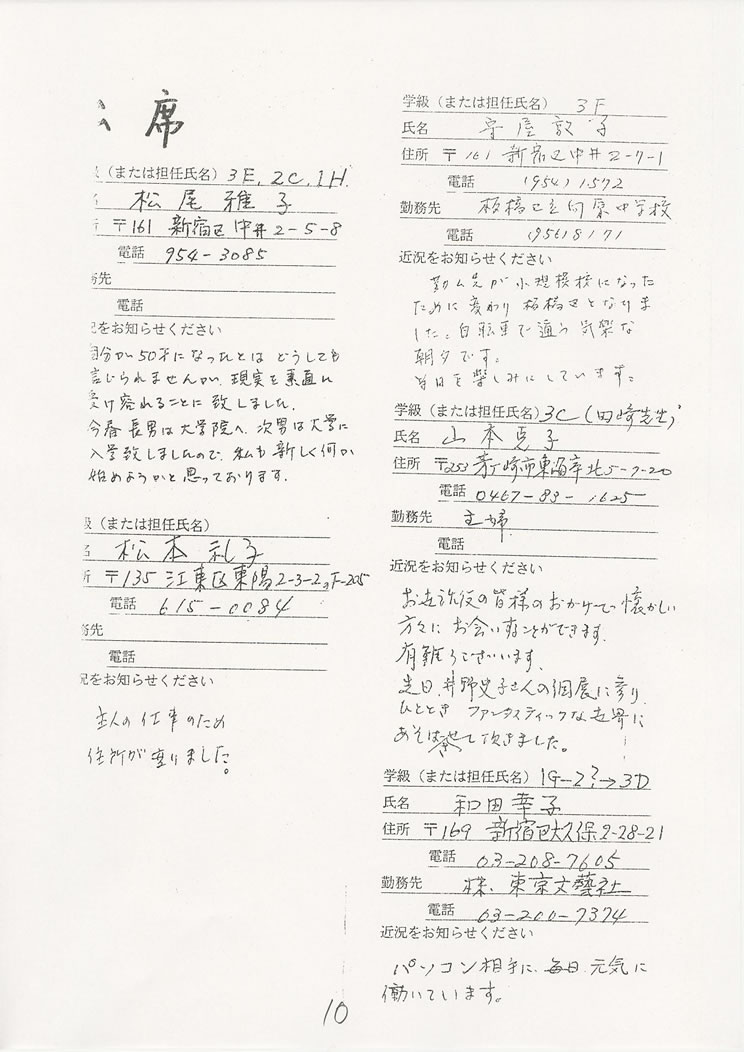 席
(または担任氏名) 3E, 2C, 1H
松尾雅子
〒161 新宿区中井2-5-8
電話 954-3085
務先
電話
況をお知らせください
自分が50才になったとは どうしても
信じられませんが、現実を素直に
受け容れることに致しました。
今春 長男は大学院へ、次男は大学に
入学致しましたので、私も新しく何か
始めようかと思っております。
級(または担任氏名)
名 松本礼子
所 〒135 江東区東陽2-3-2
電話 615-0084
務先
電話
況をお知らせください
主人の仕事のため
住所が変りました。
学級(または担任氏名) 3F
氏名 守屋敦子
住所 〒161 新宿区中井2-7-1
電話 (954) 1572
勤務先 板橋区立向原中学校
電話 (956) 8171
近況をお知らせください
勤ム先が小規模校になった
ために変わり板橋区となりま
した。自転車で通う気楽な
朝夕です。
毎日を楽しみにしています。
学級(または担任氏名) 3C (田崎先生)
氏名 山本克子
住所 〒253 茅ヶ崎市東海岸北5-7-20
電話 0467-83-1625
勤務先 主婦
電話
近況をお知らせください
お世話役の皆様のおかげで懐かしい
方々に お会いすることができます。
有難うございます。
先日、井野史子さんの個展に参り、
ひととき ファンタスティックな世界に
あそばせて頂きました。
学級(または担任氏名) 1G-2?→3D
氏名 和田幸子
住所 〒169 新宿区大久保2-28-21
電話 03-208-7605
勤務先 株、東京文藝社
電話 03-200-7374
近況をお知らせください
パソコン相手に、毎日 元気に
働いています。
10